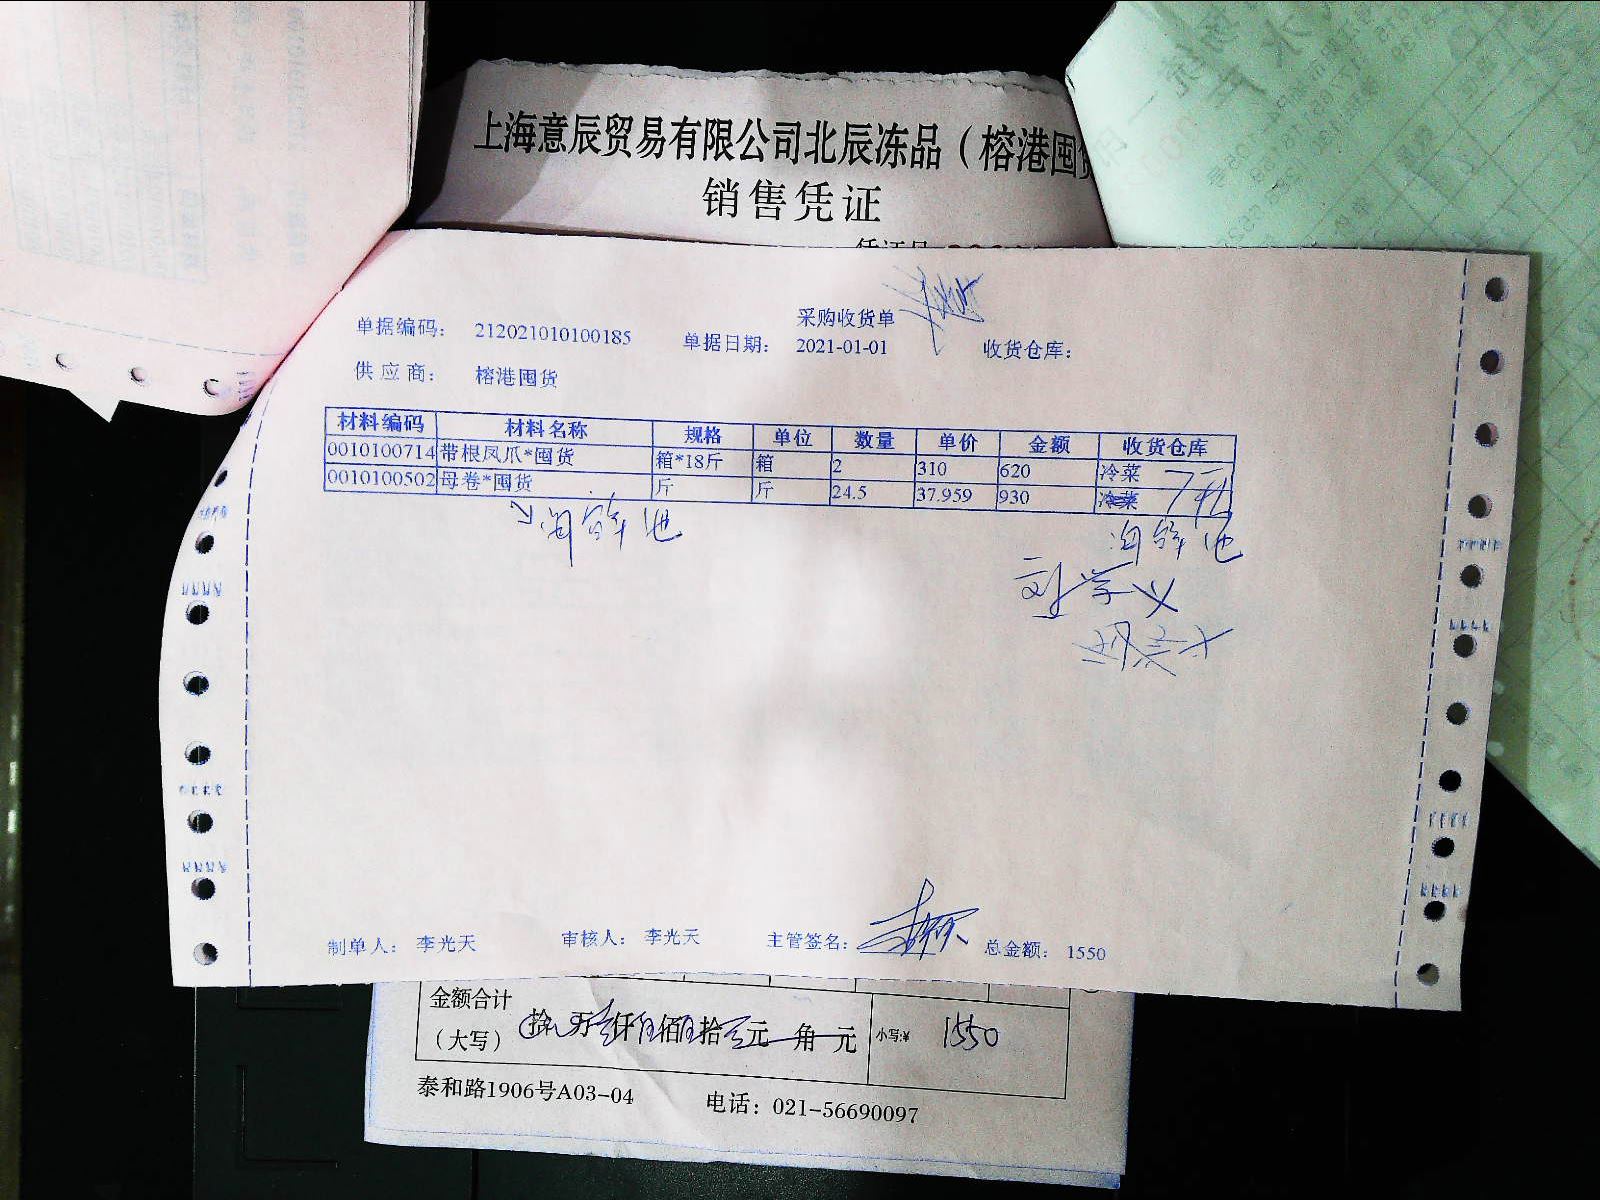 上海意辰贸易有限公司北辰冻品（榕港囤货
销售凭证
采购收货单
单据编码： 212021010100185 单据日期： 2021-01-01 收货仓库：
供应商： 榕港囤货
材料编码 材料名称 规格 单位 数量 单价 金额 收货仓库
0010100714 带根凤爪*囤货 箱*18斤 箱 2 310 620 冷菜
0010100502 母卷*囤货 斤 斤 24.5 37.959 930 冷菜
刘学义
制单人： 李光天 审核人： 李光天 主管签名： 总金额： 1550
金额合计
（大写） 拾 万 仟 佰 拾 元 角 元 小写:¥ 1550
泰和路1906号A03-04 电话：021-56690097